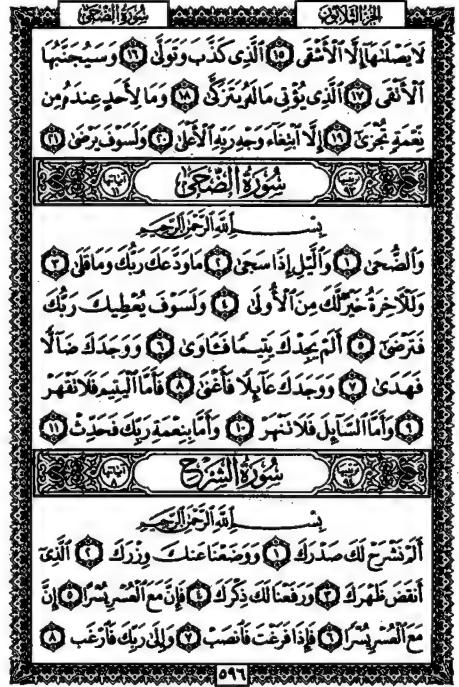 سُورَةُ الضُّحَىٰ
الجُزْءُ الثَّلَاثُونَ
لَا يَصْلَىٰهَآ إِلَّا ٱلْأَشْقَى ١٥ ٱلَّذِى كَذَّبَ وَتَوَلَّىٰ ١٦ وَسَيُجَنَّبُهَا
ٱلْأَتْقَى ١٧ ٱلَّذِى يُؤْتِى مَالَهُۥ يَتَزَكَّىٰ ١٨ وَمَا لِأَحَدٍ عِندَهُۥ مِن
نِّعْمَةٍ تُجْزَىٰٓ ١٩ إِلَّا ٱبْتِغَآءَ وَجْهِ رَبِّهِ ٱلْأَعْلَىٰ ٢٠ وَلَسَوْفَ يَرْضَىٰ ٢١
سُورَةُ الضُّحَىٰ
بِسْمِ ٱللَّهِ ٱلرَّحْمَٰنِ ٱلرَّحِيمِ
وَٱلضُّحَىٰ ١ وَٱلَّيْلِ إِذَا سَجَىٰ ٢ مَا وَدَّعَكَ رَبُّكَ وَمَا قَلَىٰ ٣
وَلَلْءَاخِرَةُ خَيْرٌ لَّكَ مِنَ ٱلْأُولَىٰ ٤ وَلَسَوْفَ يُعْطِيكَ رَبُّكَ
فَتَرْضَىٰٓ ٥ أَلَمْ يَجِدْكَ يَتِيمًا فَـَٔاوَىٰ ٦ وَوَجَدَكَ ضَآلًّا
فَهَدَىٰ ٧ وَوَجَدَكَ عَآئِلًا فَأَغْنَىٰ ٨ فَأَمَّا ٱلْيَتِيمَ فَلَا تَقْهَرْ
٩ وَأَمَّا ٱلسَّآئِلَ فَلَا تَنْهَرْ ١٠ وَأَمَّا بِنِعْمَةِ رَبِّكَ فَحَدِّثْ ١١
سُورَةُ الشَّرْحِ
بِسْمِ ٱللَّهِ ٱلرَّحْمَٰنِ ٱلرَّحِيمِ
أَلَمْ نَشْرَحْ لَكَ صَدْرَكَ ١ وَوَضَعْنَا عَنكَ وِزْرَكَ ٢ ٱلَّذِىٓ
أَنقَضَ ظَهْرَكَ ٣ وَرَفَعْنَا لَكَ ذِكْرَكَ ٤ فَإِنَّ مَعَ ٱلْعُسْرِ يُسْرًا ٥ إِنَّ
مَعَ ٱلْعُسْرِ يُسْرًا ٦ فَإِذَا فَرَغْتَ فَٱنصَبْ ٧ وَإِلَىٰ رَبِّكَ فَٱرْغَب ٨
٥٩٦